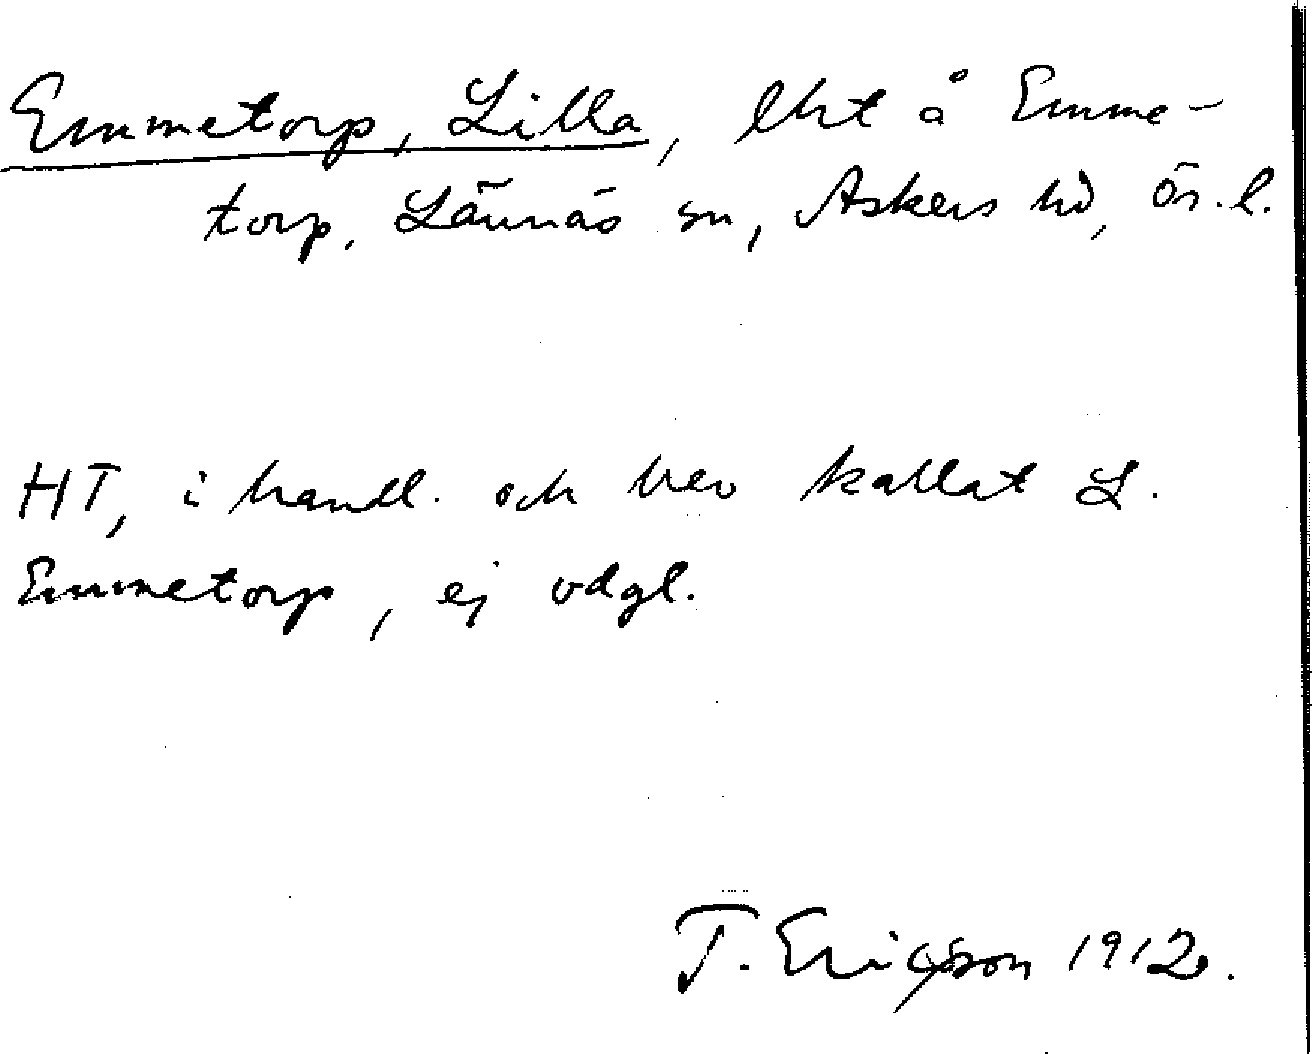 Emmetorp, Lilla, lht å Emme-
torp, Lännäs sn, Askers hd, Ör. l.
HT, i handl. och brev kallat L.
Emmetorp, ej vdgl.
T. Ericsson 1912.